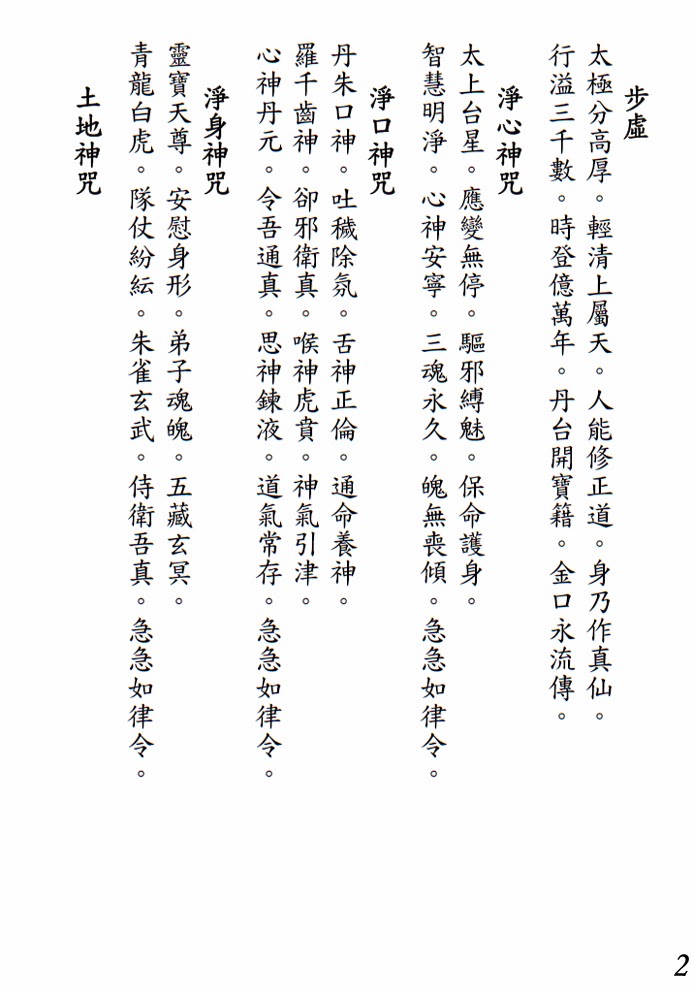 步虛
太極分高厚。輕清上屬天。人能修正道。身乃作真仙。
行溢三千數。時登億萬年。丹台開寶籍。金口永流傳。
淨心神咒
太上台星。應變無停。驅邪縛魅。保命護身。
智慧明淨。心神安寧。三魂永久。魄無喪傾。急急如律令。
淨口神咒
丹朱口神。吐穢除氛。舌神正倫。通命養神。
羅千齒神。卻邪衛真。喉神虎賁。神氣引津。
心神丹元。令吾通真。思神鍊液。道氣常存。急急如律令。
淨身神咒
靈寶天尊。安慰身形。弟子魂魄。五藏玄冥。
青龍白虎。隊仗紛紜。朱雀玄武。侍衛吾真。急急如律令。
土地神咒
2